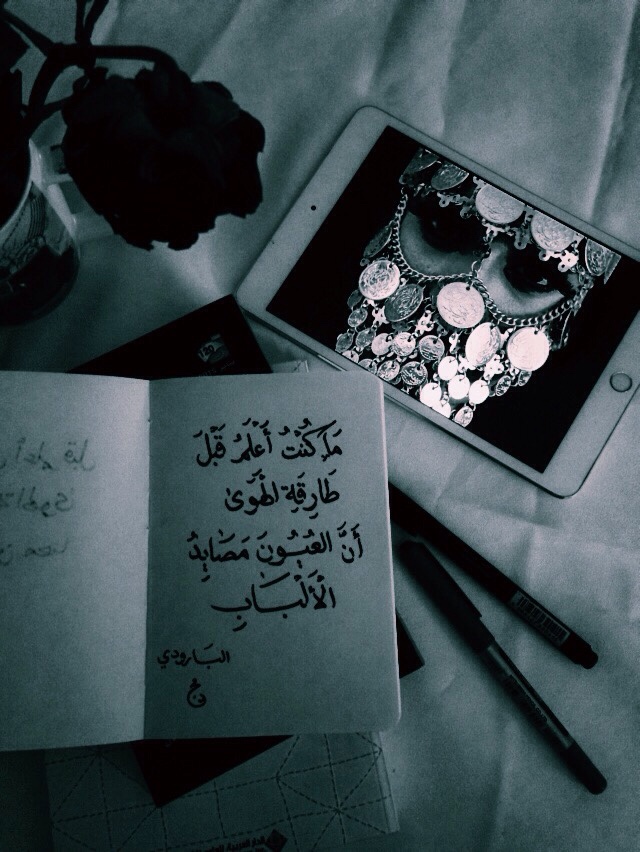 مَا كُنْتُ أَعْلَمُ قَبْلَ
طَارِقَةِ الْهَوَىٰ
أَنَّ العُيُونَ مَصَايِدُ
الْأَلْبَابِ
البَارودي